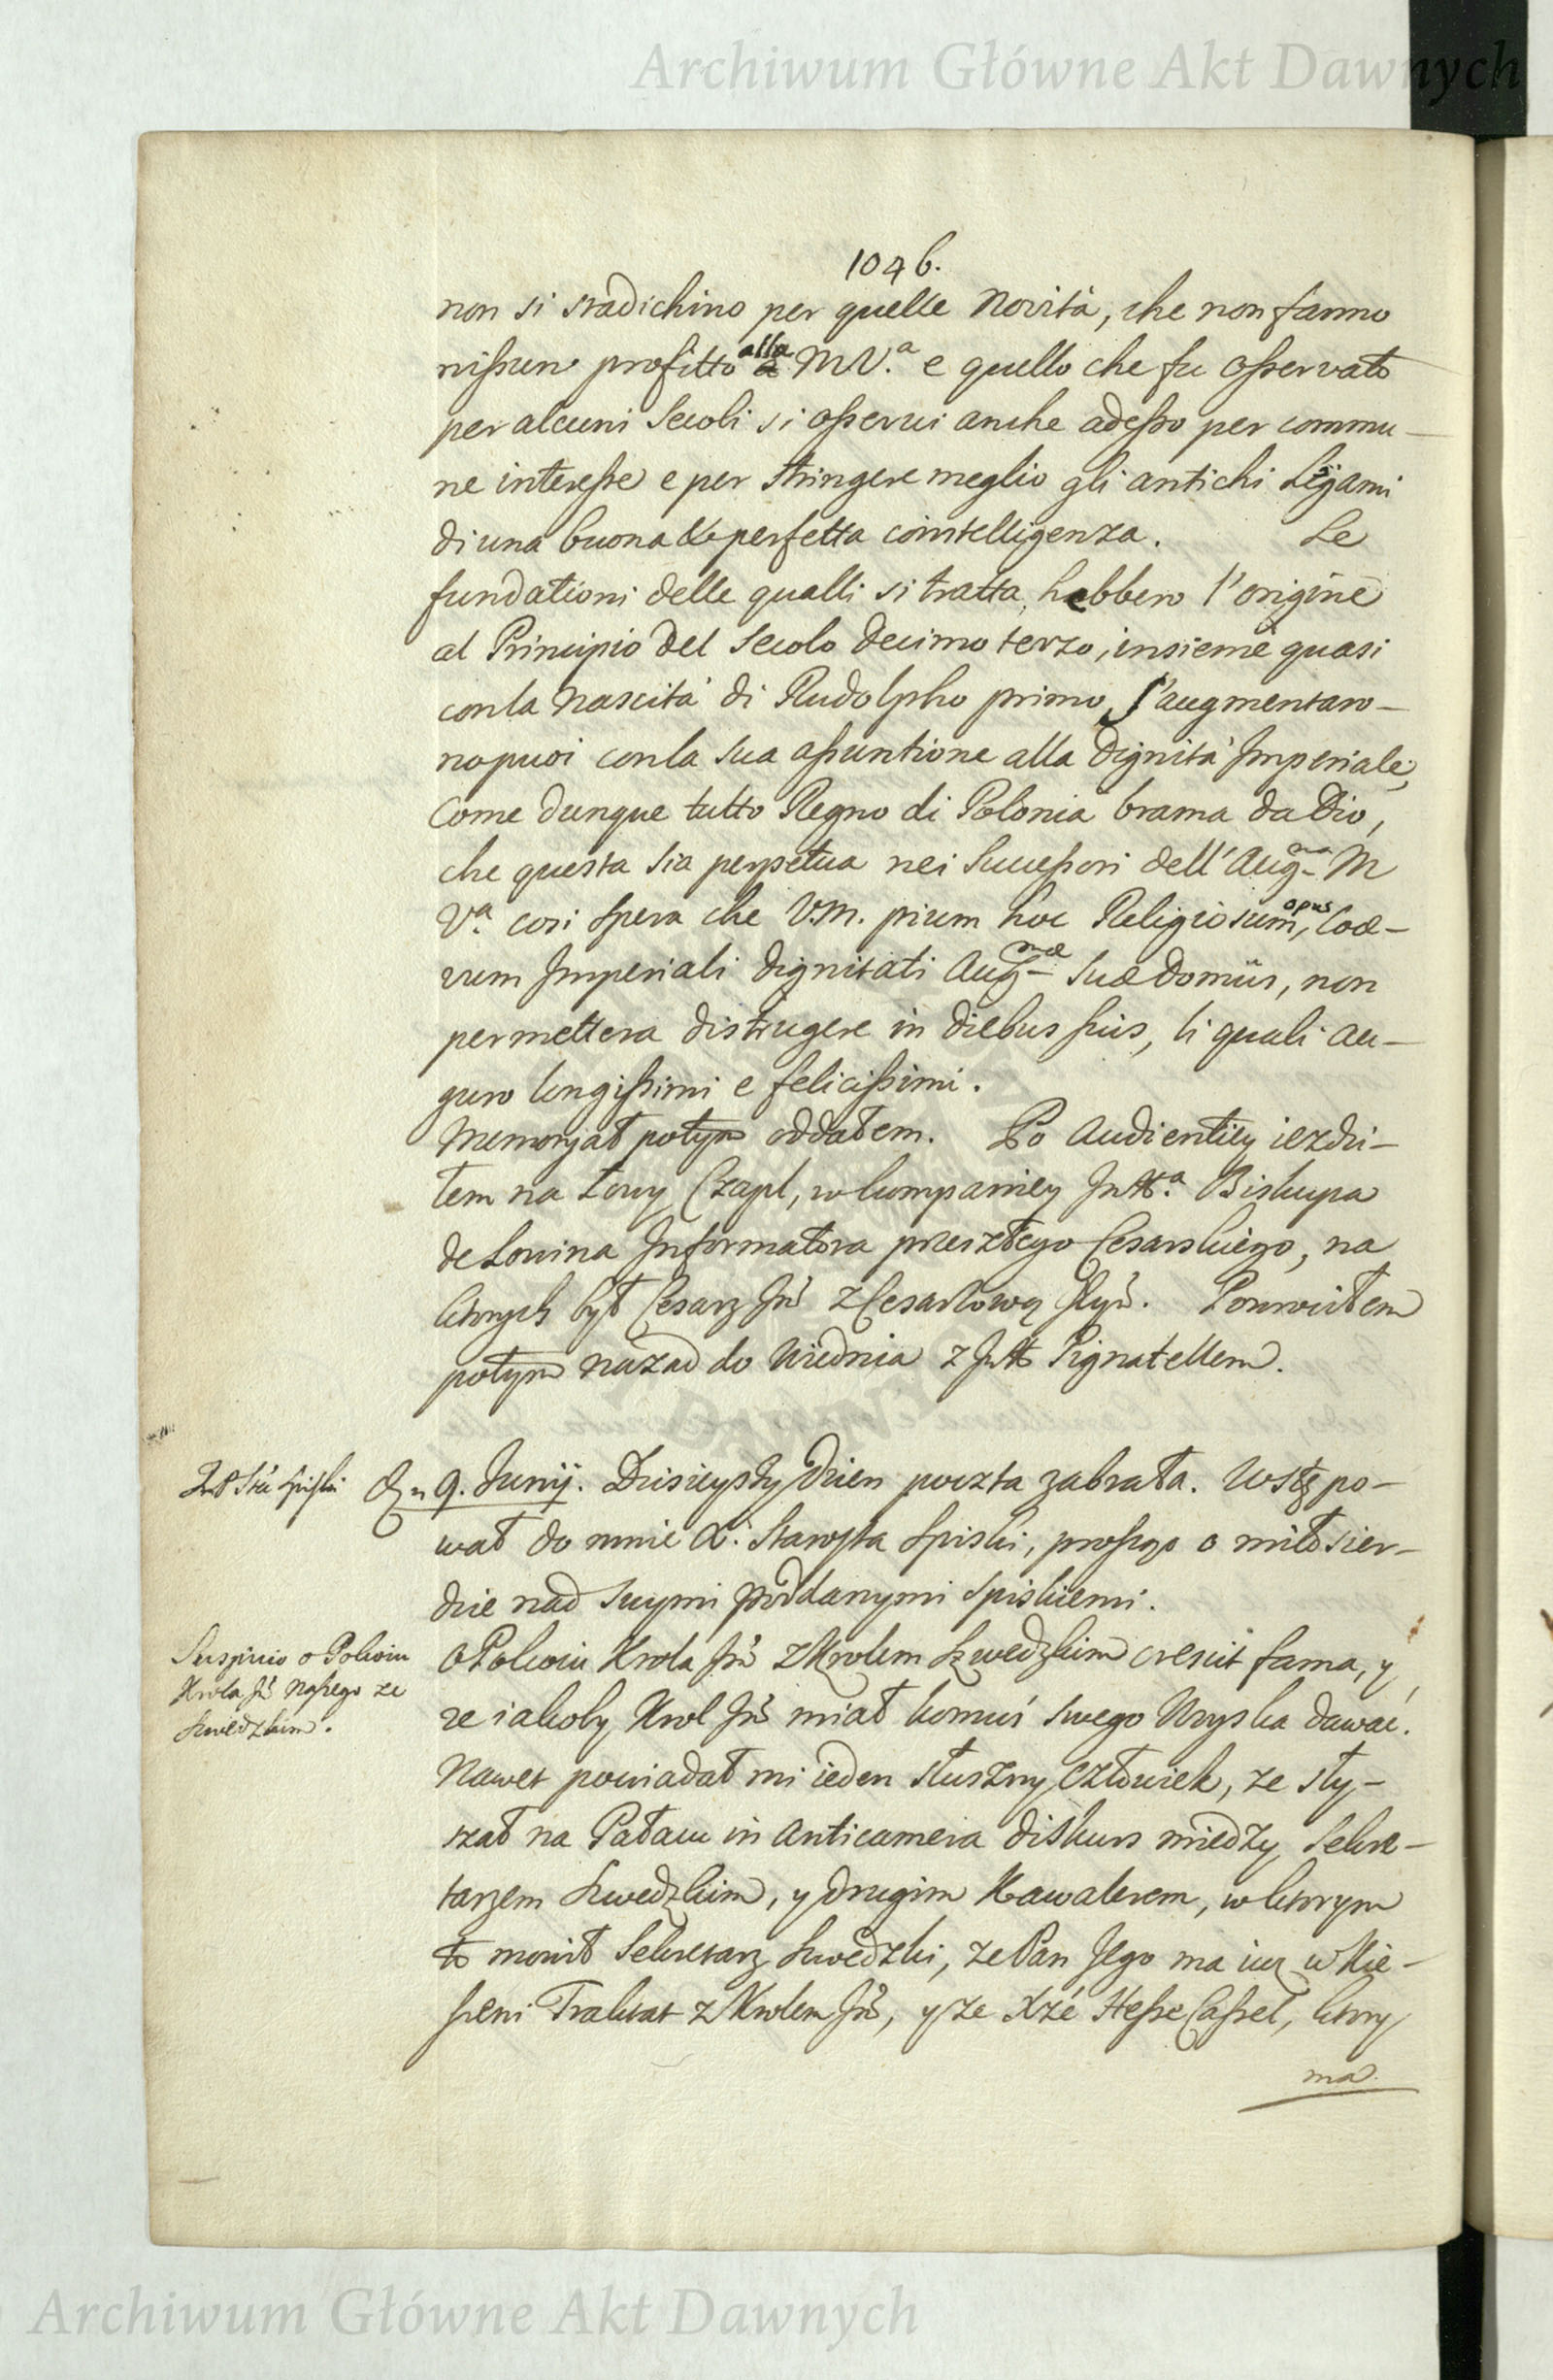 Archiwum Główne Akt Dawnych
1046.
non si sradichino per quelle Novità, che non fanno
nissun profitto alla M V.a e quello che fu osservato
per alcuni Secoli si osservi anche adesso per commu-
ne interesse e per stringere meglio gli antichi Legami
di una buona & perfetta cointelligenza. Le
fundationi delle qualli si tratta hebbero l'origine
al Principio del Secolo decimo terzo, insieme quasi
con la Nascità di Rudolpho primo, s'augmentaro-
no puoi con la Sua assuntione alla Dignità Imperiale,
Come dunque tutto Regno di Polonia brama da Dio,
che questa sia perpetua nei Successori dell' Aug.ma M
V.a cosi spera che V.M. pium hoc Religiosum opus, Coæ-
vum Imperiali dignitati Aug.mæ Suæ Domûs, non
permettera distrugere in diebus suis, li quali au-
guro longissimi e felicissimi.
Memoryał potym oddałem. Po Audientiey iezdzi-
łem na Łowy Czapl, w kompaniey Biskupa
de Lovina Informatora przeszłego Cesarskiego, na
ktorych był Cesarz Jmć z Cesarzową Jeyć. Powrociłem
potym nazad do Wiednia z Pignatellem.
Stá Spiski
Dn 9. Junij. Dzisieyszy Dzien poczta zabrała. Wstępo-
wał do mnie X. Starosta Spiski, prosząc o miłosier-
dzie nad swymi poddanymi Spiskiemi.
Suspicio o Pokoiu
Krola Jmć Naszego ze
Szwedzkim.
O Pokoiu Krola Jmć z Krolem Szwedzkim crescit fama, y
ze iakoby Krol Jmć miał komuś swego Woyska dawać.
Nawet powiadał mi ieden słuszny Człowiek, ze sły-
szał na Pałacu in Anticamera diskurs miedzy Sekre-
tarzem Szwedzkim, y drugim Kawalerem, w ktorym
to mowił Sekretarz Szwedzki, ze Pan Jego ma iuz w Kie-
szeni Traktat z Krolem Jmć, y ze Xże Hesse Cassel, ktory
ma.
Archiwum Główne Akt Dawnych